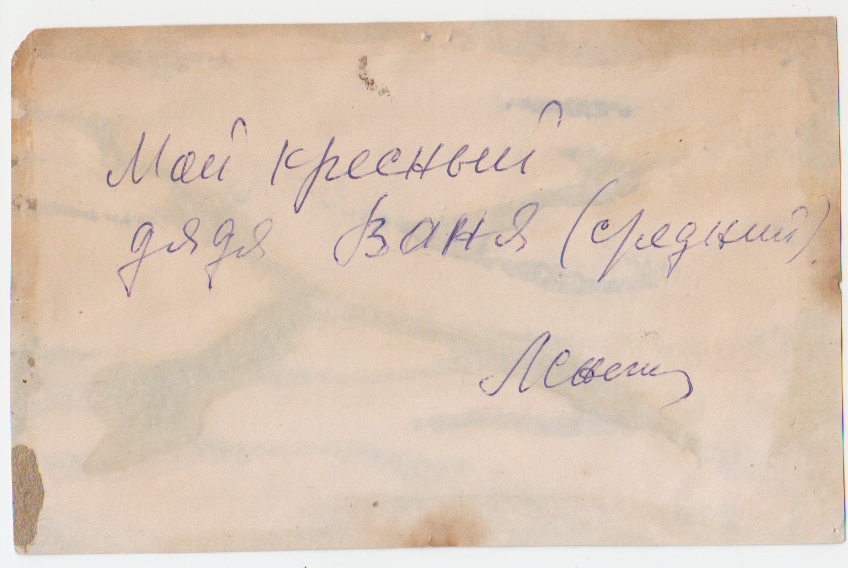 Мой кресный
дядя Ваня (средний)